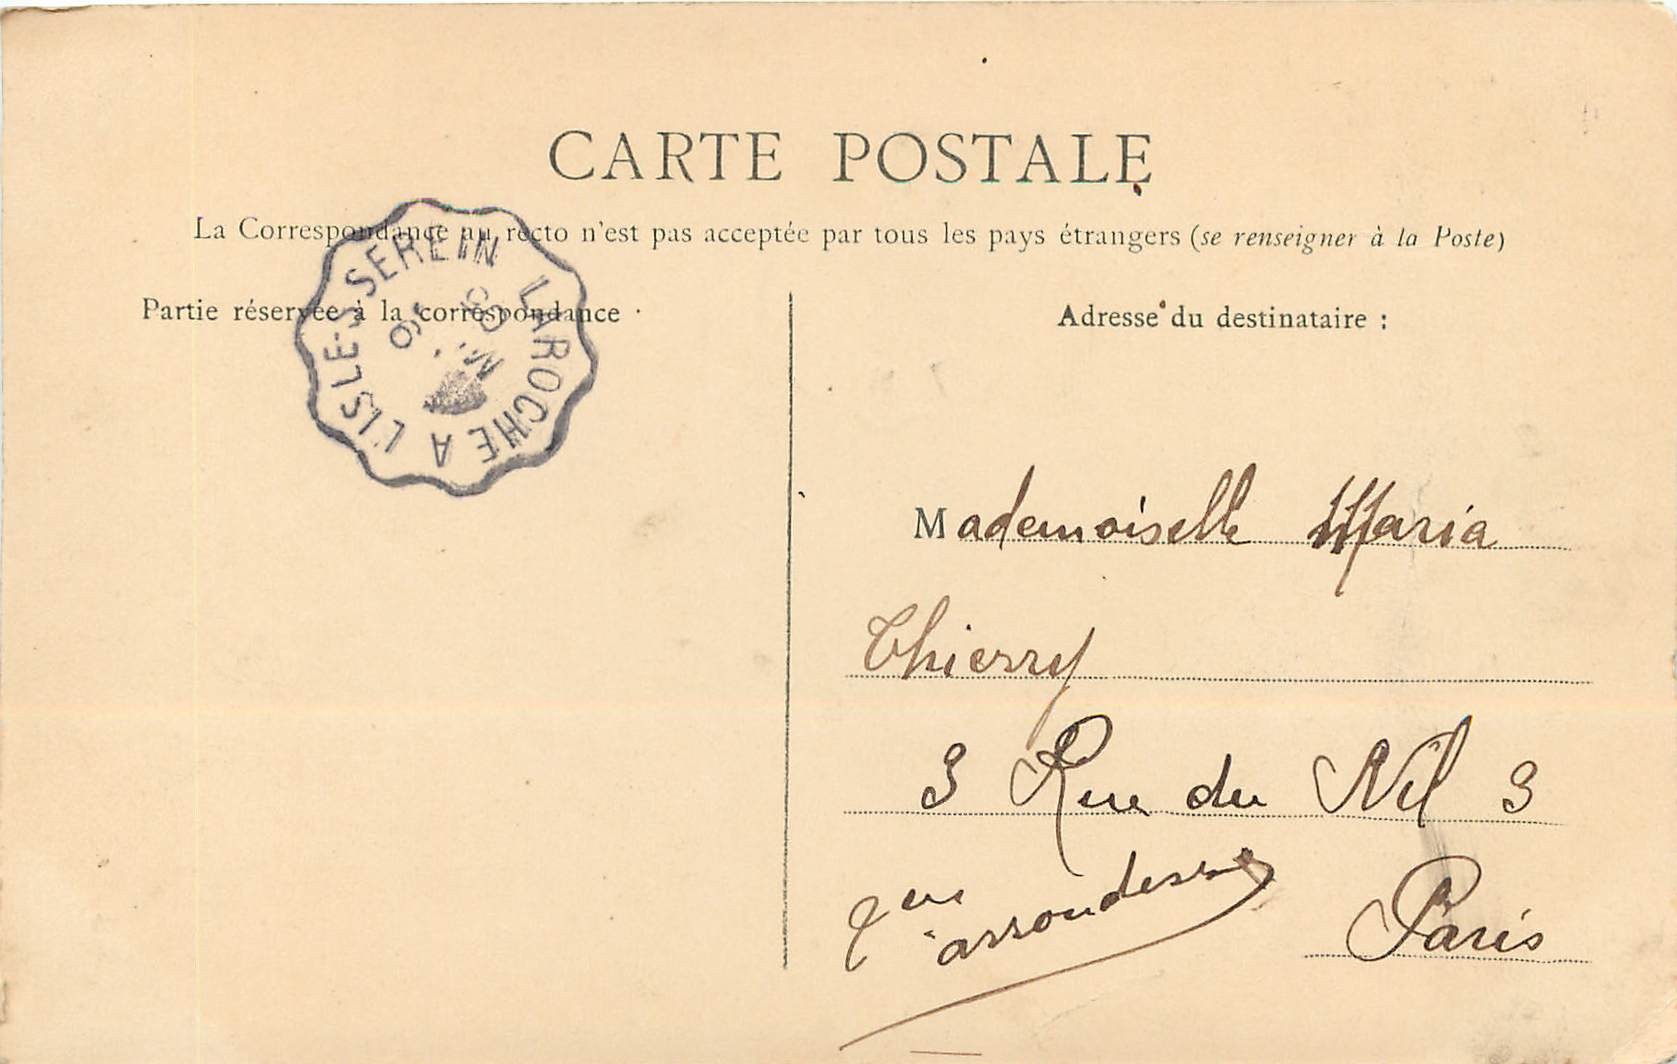 CARTE POSTALE
La Correspondance au recto n'est pas acceptée par tous les pays étrangers (se renseigner à la Poste)
Partie réservée à la correspondance
Adresse du destinataire :
LAROCHE A L'ISLE-S-SEREIN
Mademoiselle Maria
Thierry
3 Rue du Nil 3
Paris